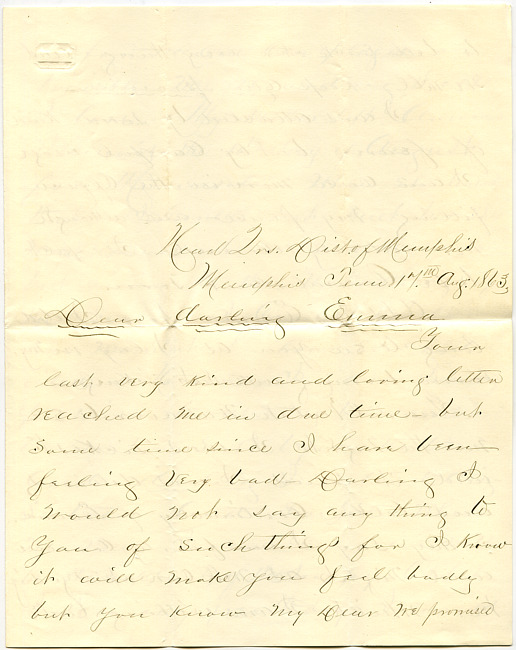 Head Qrs. Dist. of Memphis
Memphis Tenn 17th Aug. 1863
Dear darling Emma
Your
last very kind and loving letter
reached me in due time - but
some time since I have been
feeling very bad - Darling I
would not say any thing to
You of such things for I know
it will make you feel badly
but you know my Dear we promised